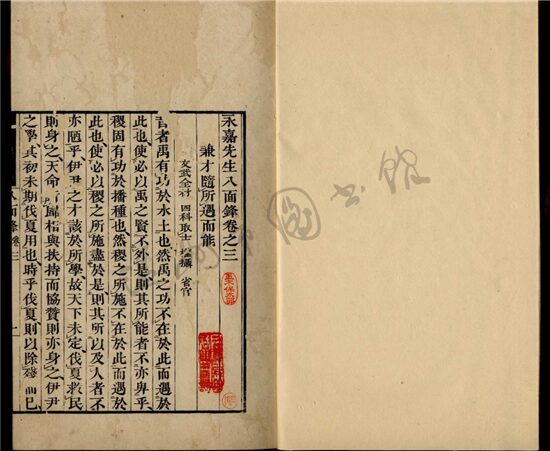 永嘉先生八面鋒卷之三
兼才隨所遇而能
文武全材 四科取士 攝 省官
昔者禹有功於水土也然禹之功不在於此而遇於
此也使必以禹之賢不外是則其所能者不亦卑乎
稷固有功於播種也然稷之所施不在於此而遇於
此也使必以稷之所施盡於是則其所以及人者不
亦陋乎伊尹之才該於所學故天下未定伐夏救民
則身之天命 歸相與扶持而協贊則亦身之伊尹
之學其初未期伐夏用也時乎伐夏則以除殘而已
八面鋒卷三
一
圖書館